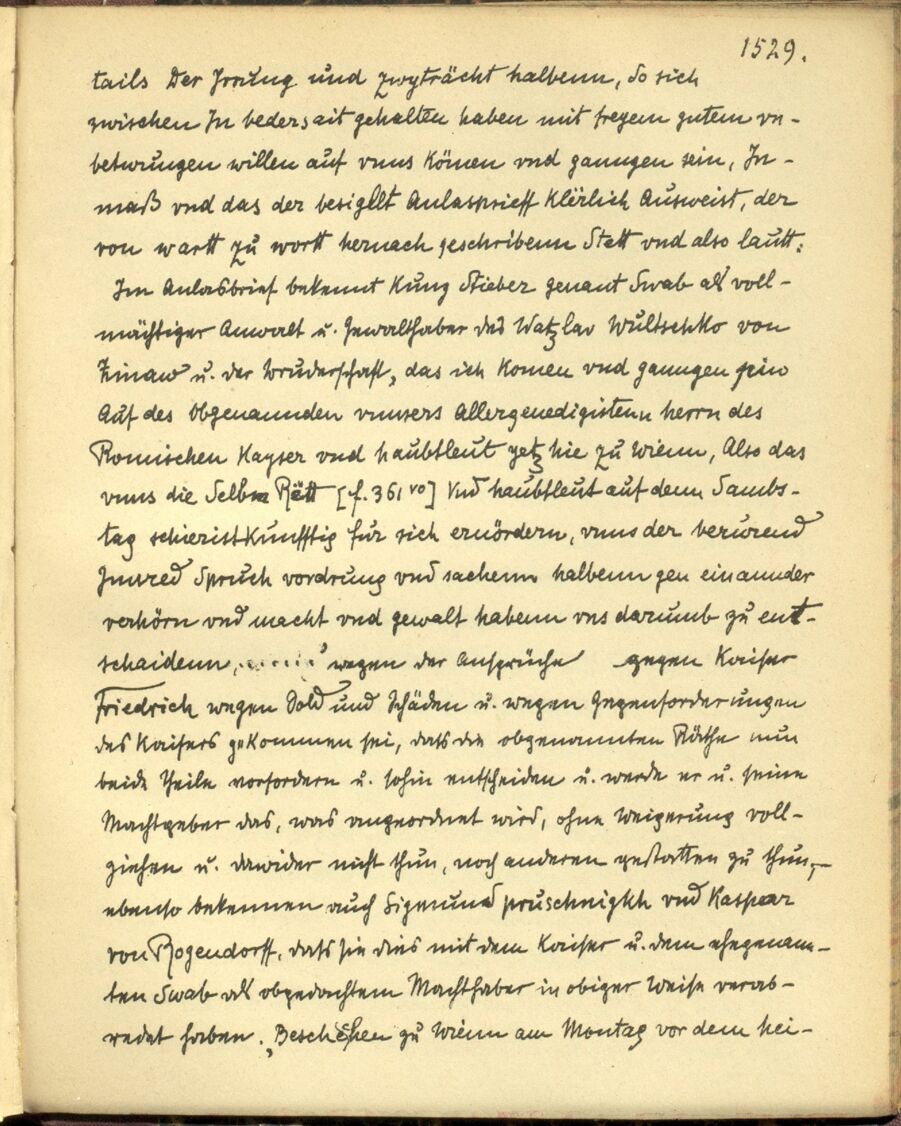 1529.
tails Der Irrung und zwyträcht halbenn, so sich
zwischen In bedersait gehalten haben mit freyem gutem vn-
betwungen willen auf vnns kömen vnd ganngen sein, In-
maß vnd das der besigllt Anlasprieff klërlich Ausweist, der
von wartt zu wortt hernach geschribenn Stett vnd also lautt:
Im Anlasbrief bekennt Kunz Stieber genant Swab als voll-
mächtiger Anwalt u. Gewalthaber des Watzlav Wultschko von
Zinaw u. der Bruderschaft, das ich komen vnd ganngen sein
Auf des Obgenannden vnnsers Allergenedigisten herrn des
Romischen Kayser vnd haubtleut yetz hie zu Wienn, Also das
vnns die Selbn Rätt [f. 361 vo] vnd haubtleut auf denn Sambs-
tag schieristkünfftig für sich eruördern, vnns der berurend
Spruch vordrung vnd sachenn halbenn gen einannder
verhörn vnd macht vnd gewalt habenn vns darumb zu ent-
schaidenn, ..... wegen der Ansprüche gegen Kaiser
Friedrich wegen Sold und Schäden u. wegen Gegenforderungen
des Kaisers gekommen sei, dass die obgenannten Räthe nun
beide Theile vorfordern u. sohin entscheiden u. werde er u. seine
Machtgeber das, was angeordnet wird, ohne Weigerung voll-
ziehen u. dawider nicht thun, noch anderen gestatten zu thun,-
ebenso bekennen auch Sigmund pruschnigkh vnd Kaspar
von Rogendorff, dass sie dies mit dem Kaiser u. dem ehegenann-
ten Swab als obgedachtem Machthaber in obiger Weise verab-
redet haben. „Beschëhen zu Wienn am Montag vor dem hei-